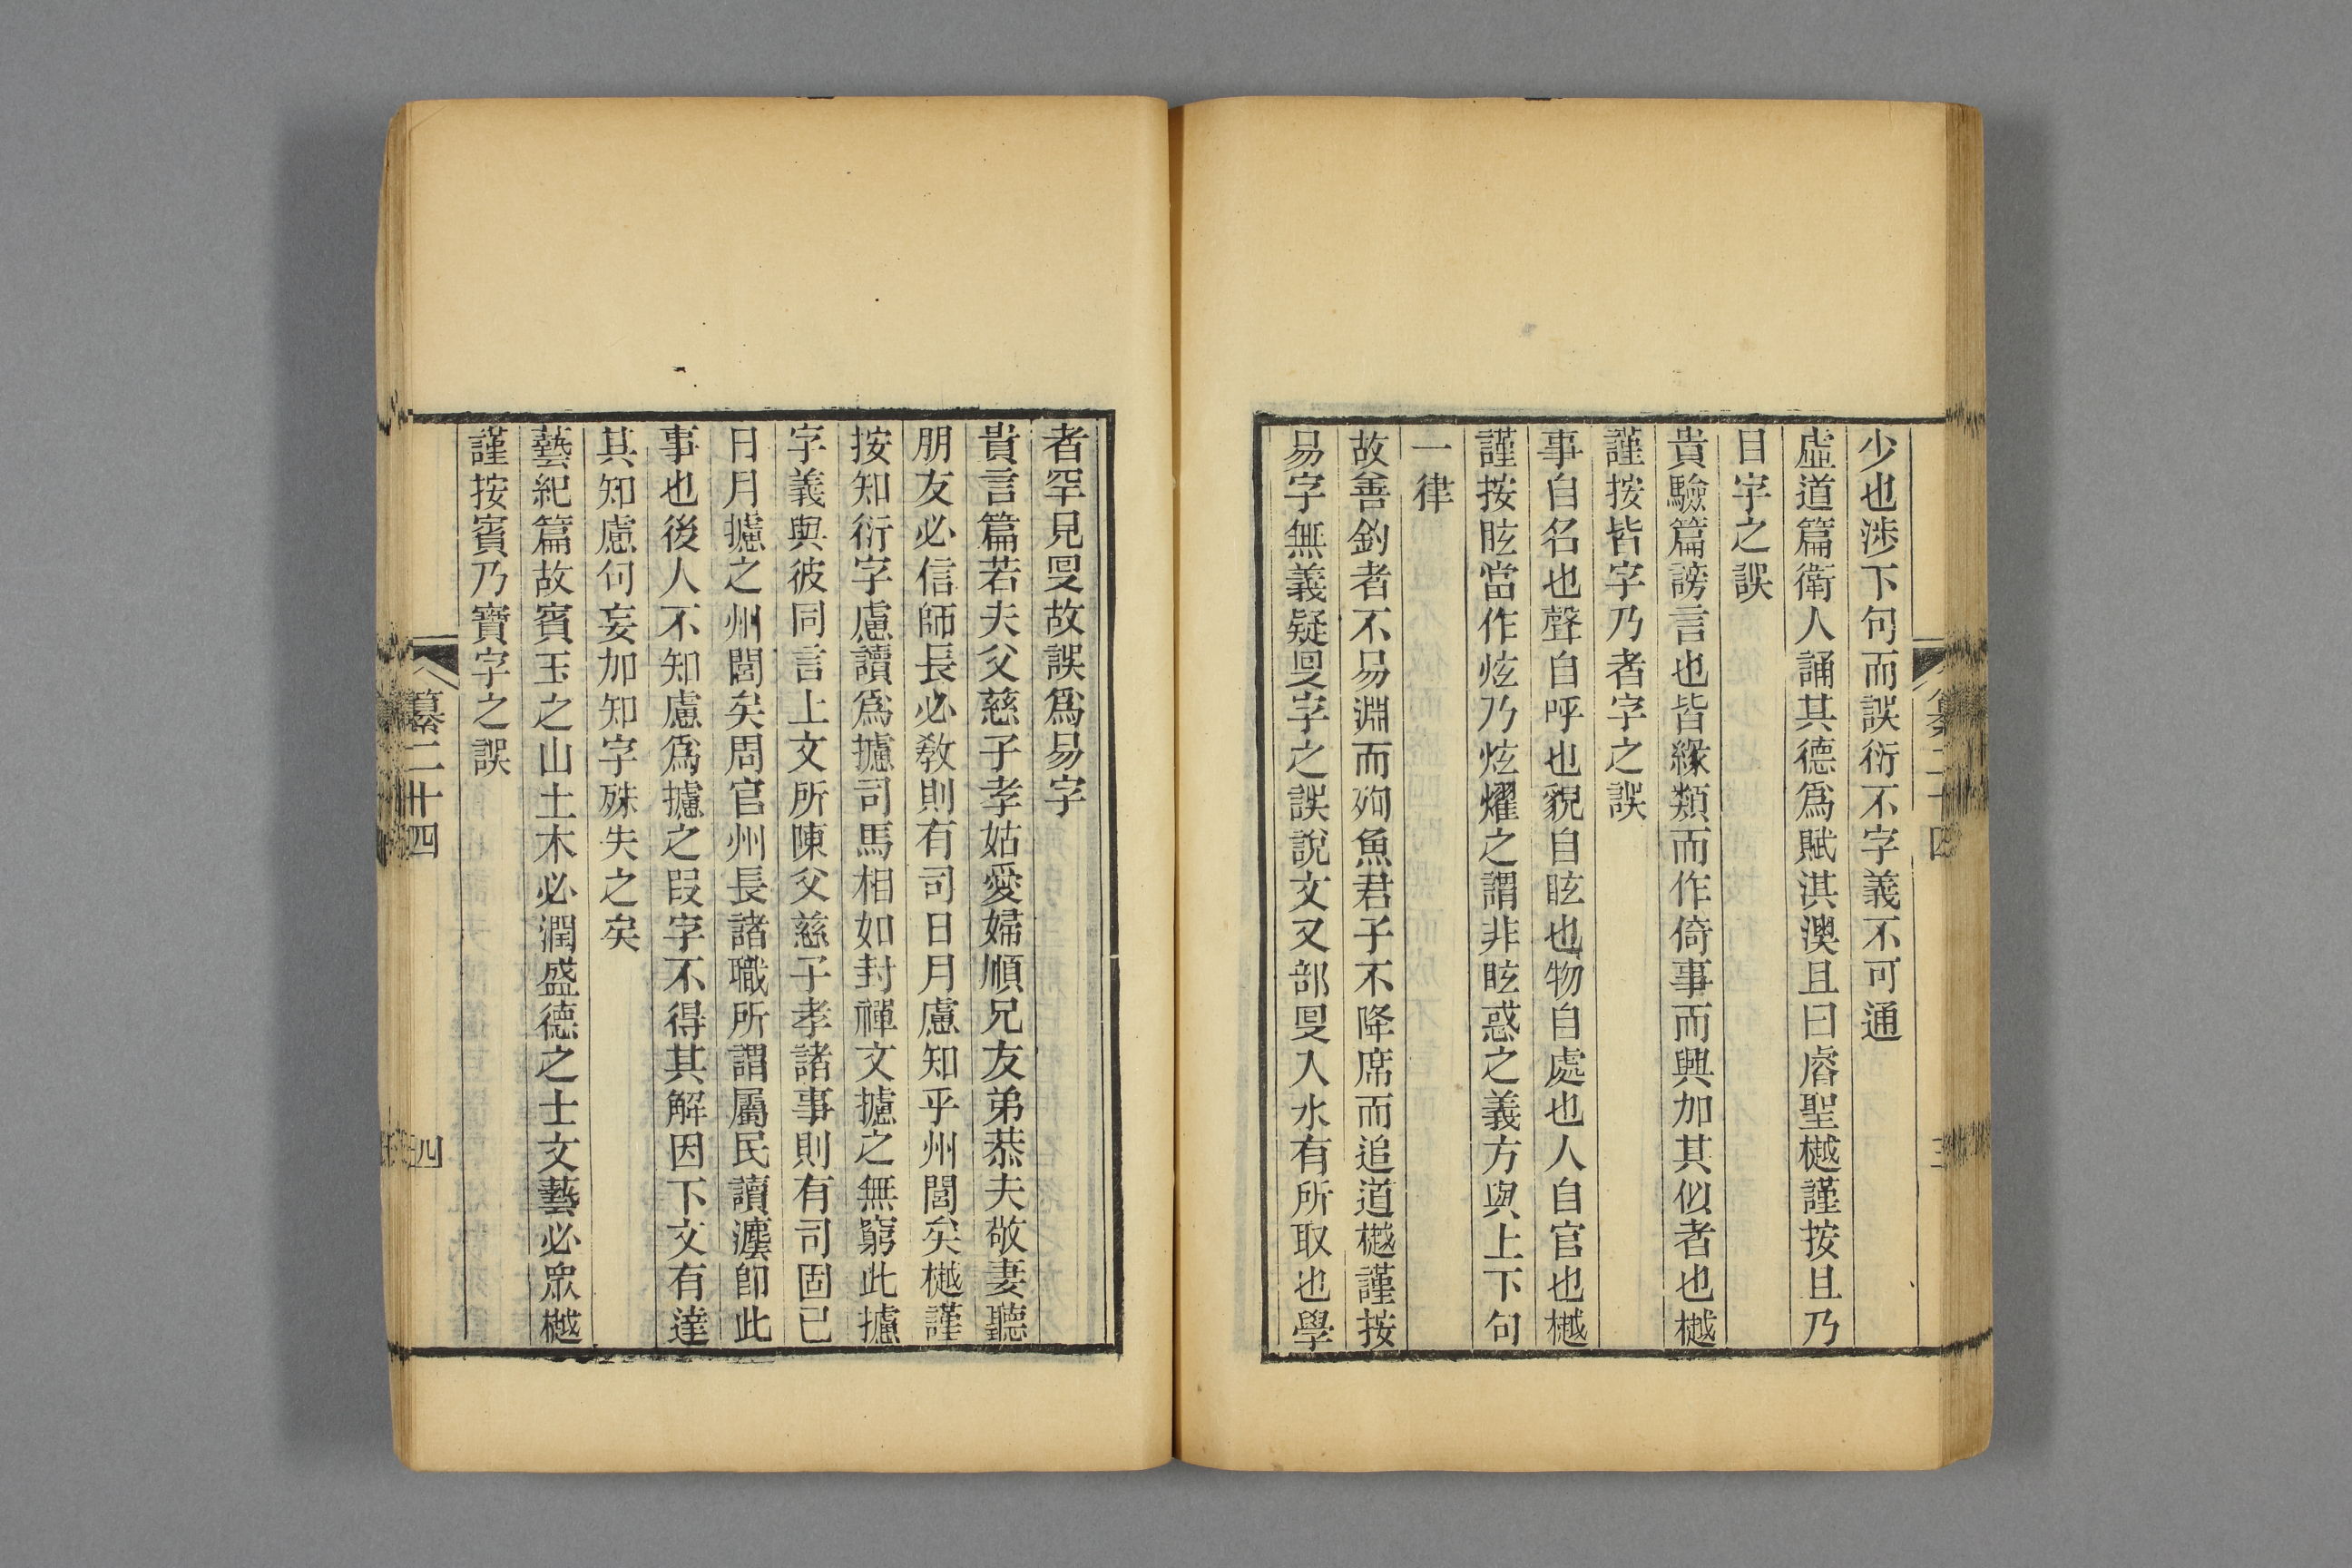 少也涉下句而誤衍不字義不可通
虛道篇衛人誦其德爲賦淇澳且曰睿聖樾謹按且乃
目字之誤
貴驗篇謗言也皆緣類而作倚事而興加其似者也樾
謹按皆字乃者字之誤
事自名也聲自呼也貌自眩也物自處也人自官也樾
謹按眩當作炫乃炫燿之謂非眩惑之義方與上下句
一律
故善釣者不易淵而殉魚君子不降席而追道樾謹按
易字無義疑㕞字之誤說文又部㕞入水有所取也學
者罕見㕞故誤爲易字
貴言篇若夫父慈子孝姑愛婦順兄友弟恭夫敬妻聽
朋友必信師長必敎則有司日月慮知乎州閭矣樾謹
按知衍字慮讀爲攄司馬相如封禪文攄之無窮此攄
字義與彼同言上文所陳父慈子孝諸事則有司固已
日月攄之州閭矣周官州長諸職所謂屬民讀灋卽此
事也後人不知慮爲攄之叚字不得其解因下文有達
其知慮句妄加知字殊失之矣
藝紀篇故賓玉之山土木必潤盛德之士文藝必眾樾
謹按賓乃寶字之誤
纂二十四
四